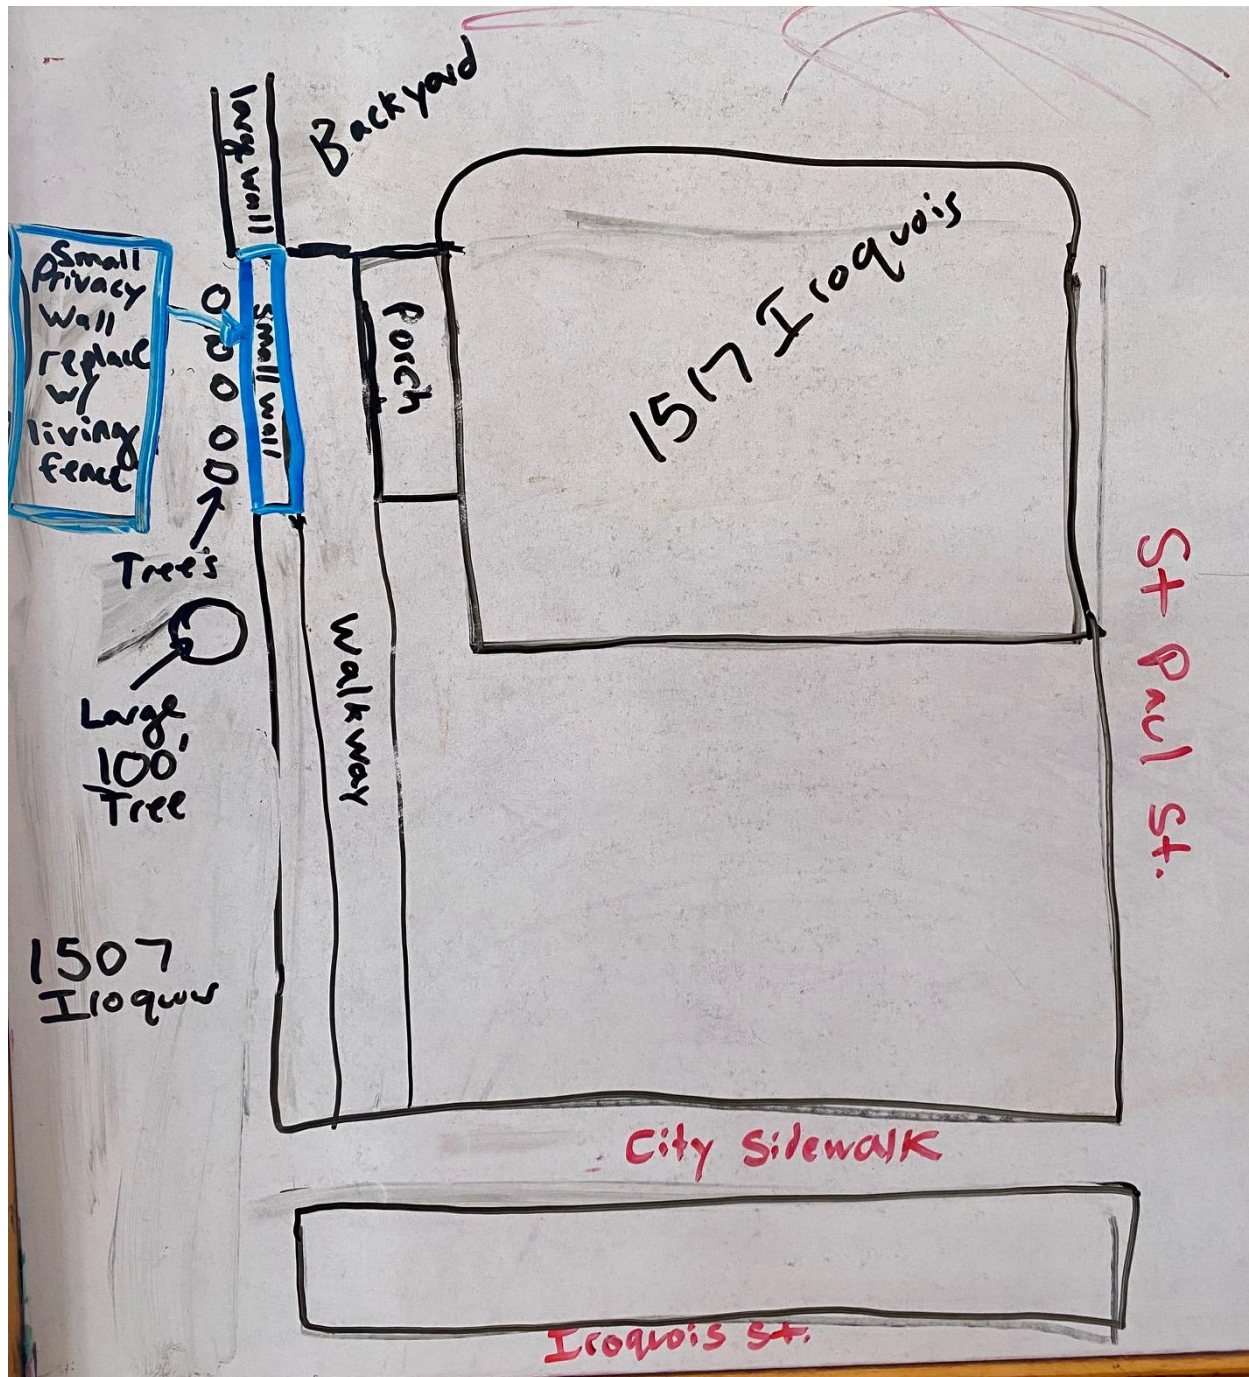 Backyard
long wall
Small
Privacy
Wall
replace
w/
living
fence
Small wall
Porch
1517 Iroquois
Tree's
Large
100'
Tree
Walkway
St Paul St.
1507
Iroquois
City Sidewalk
Iroquois St.